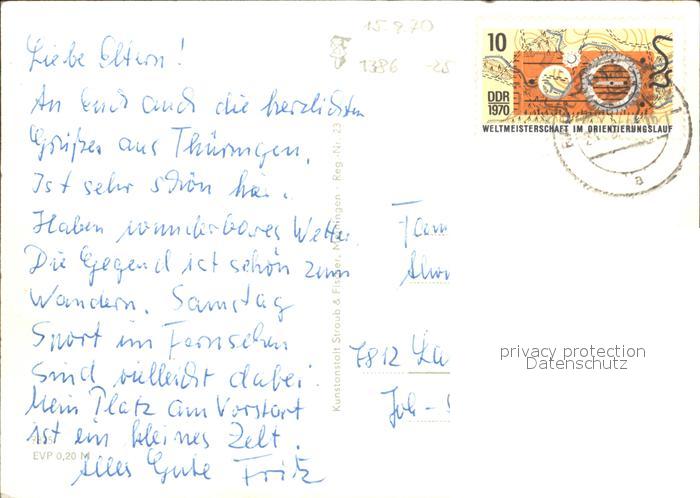 15.9.70
1386 -25
10
DDR
1970
WELTMEISTERSCHAFT IM ORIENTIERUNGSLAUF
a
Liebe Eltern!
An Euch auch die herzlichsten
Grüße aus Thüringen.
Ist sehr schön hier.
Haben wunderbares Wetter.
Die Gegend ist schön zum
Wandern. Samstag
Sport im Fernsehen
Sind vielleicht dabei.
Mein Platz am Vorstart
ist ein kleines Zelt.
Alles Gute Fritz
EVP 0,20 M
Kunstanstalt Straub & Fischer, Meiningen · Reg.-Nr. 23
Fam
7812 La
Joh-S
privacy protection
Datenschutz